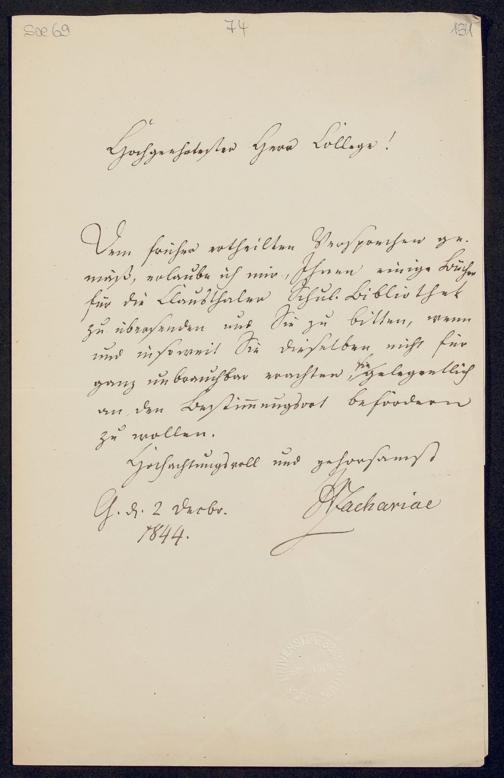 Soe 69
74
151
Hochgeehrtester Herr College!
Dem früher ertheilten Versprechen ge-
mäß, erlaube ich mir, Ihnen einige Bücher
für die Clausthaler Schul-Bibliothek
zu übersenden und Sie zu bitten, wenn
und insoweit Sie dieselben nicht für
ganz unbrauchbar erachten, sie gelegentlich
an den Bestimmungsort befördern
zu wollen.
Hochachtungsvoll und gehorsamst
G. d. 2 Decbr.
Zachariae
1844.